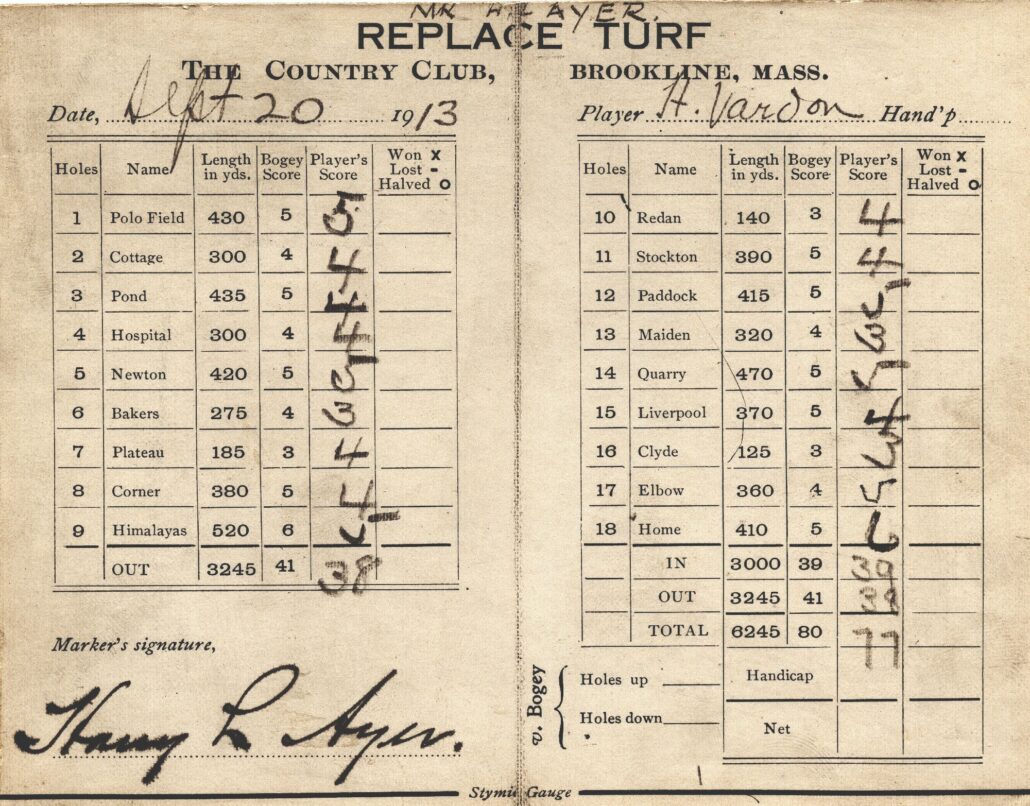 MR H L AYER.
REPLACE TURF
THE COUNTRY CLUB, BROOKLINE, MASS.
Date, Sept 20 1913
Holes Name Length in yds. Bogey Score Player's Score Won X Lost - Halved O
1 Polo Field 430 5 5
2 Cottage 300 4 4
3 Pond 435 5 4
4 Hospital 300 4 4
5 Newton 420 5 5
6 Bakers 275 4 3
7 Plateau 185 3 4
8 Corner 380 5 4
9 Himalayas 520 6 5
OUT 3245 41 38
Marker's signature,
Harry L Ayer.
Player H. Vardon Hand'p
Holes Name Length in yds. Bogey Score Player's Score Won X Lost - Halved O
10 Redan 140 3 4
11 Stockton 390 5 4
12 Paddock 415 5 5
13 Maiden 320 4 3
14 Quarry 470 5 5
15 Liverpool 370 5 4
16 Clyde 125 3 3
17 Elbow 360 4 5
18 Home 410 5 6
IN 3000 39 39
OUT 3245 41 38
TOTAL 6245 80 77
v. Bogey
Holes up
Holes down
Handicap
Net
Stymie Gauge